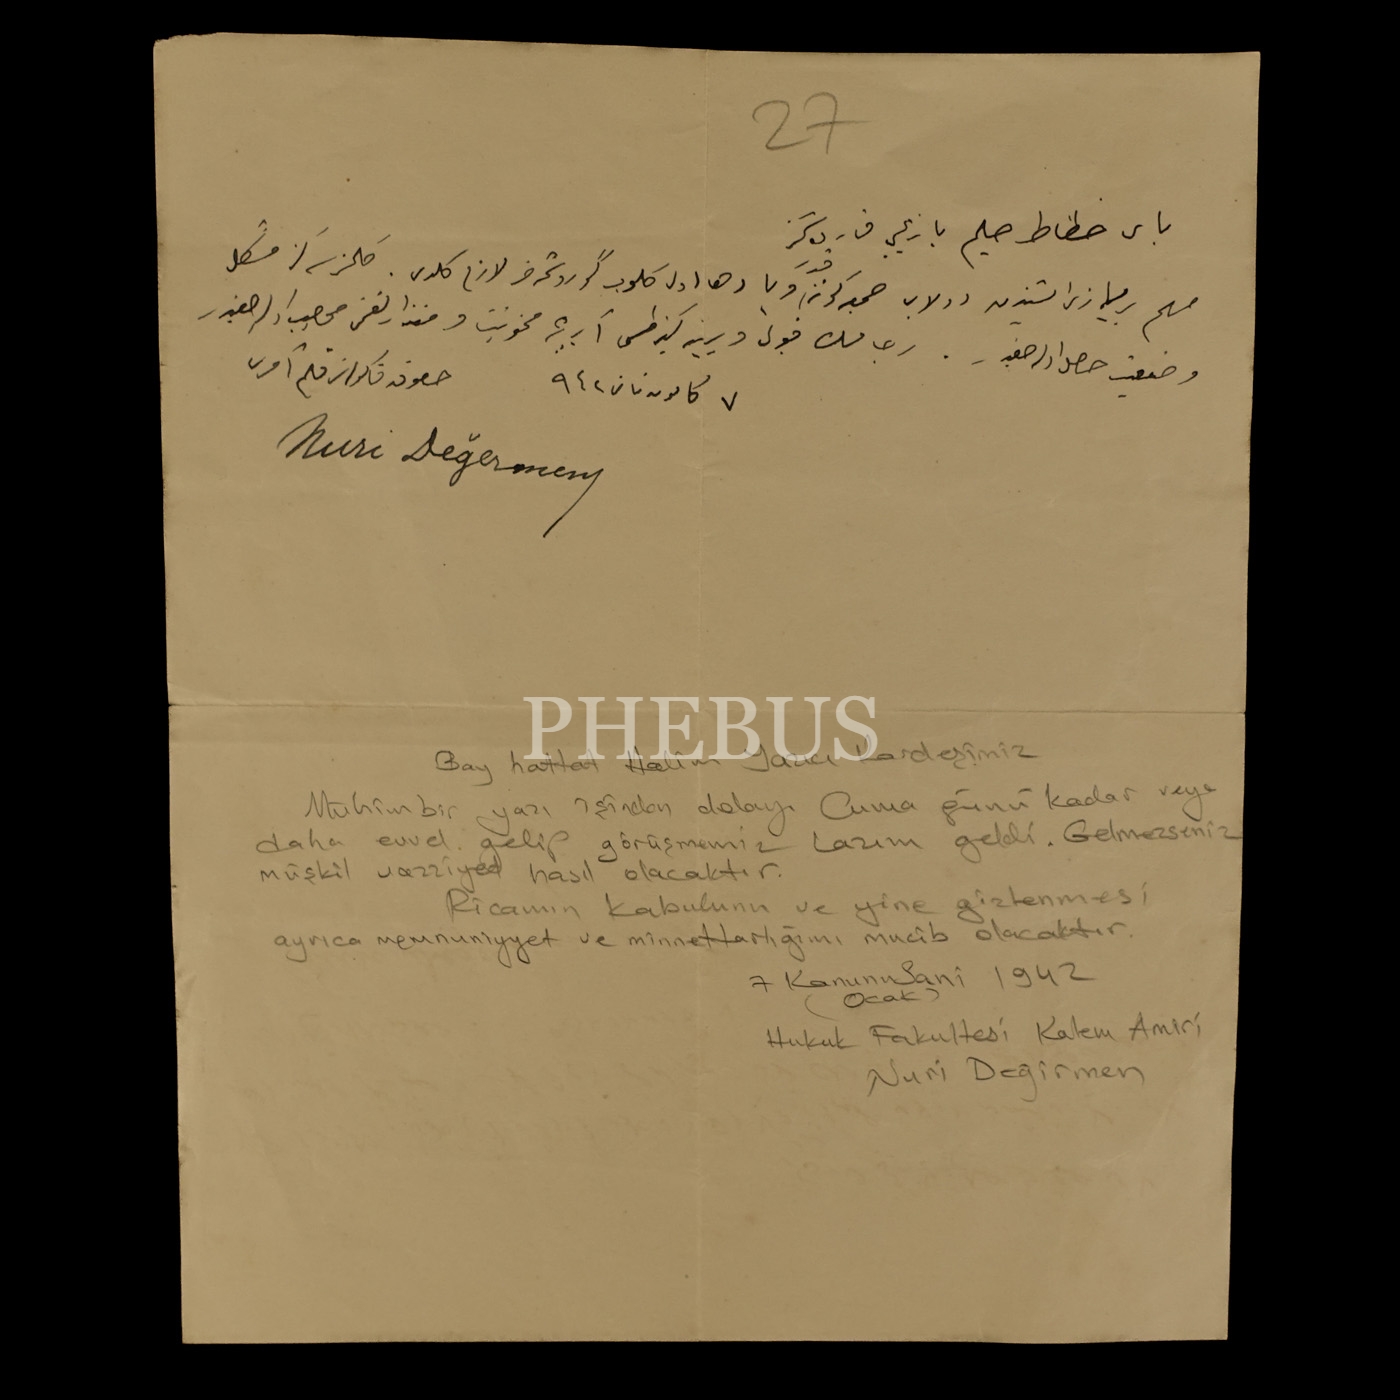 27
بای خطاط حلیم یازیجی قارداشمز
مهم بر یازی ایشندن دولایی جمعه كونی قدر ویا دها اول كلوب كوروشمه‌مز لازم كلدی . كلمزسه‌كز مشكل
وضعیت حاصل اوله‌جقدر . رجامك قبولی
٧ كانون ثانی ٩٤٢
حقوق فاكولته‌سی قلم آمری
Nuri Değermen
PHEBUS
Bay hattat Halim Yazıcı Kardeşimiz
Muhim bir yazı işinden dolayı Cuma günü kadar veya
daha evvel gelip görüşmemiz Lazım geldi. Gelmezseniz
müşkil vazziyed hasıl olacaktır.
Ricamın Kabulunu ve yine gizlenmesi
ayrıca memnuniyyet ve minnettarlığımı mucib olacaktır.
7 KanunuSani 1942
(Ocak)
Hukuk Fakultesi Kalem Amiri
Nuri Değirmen